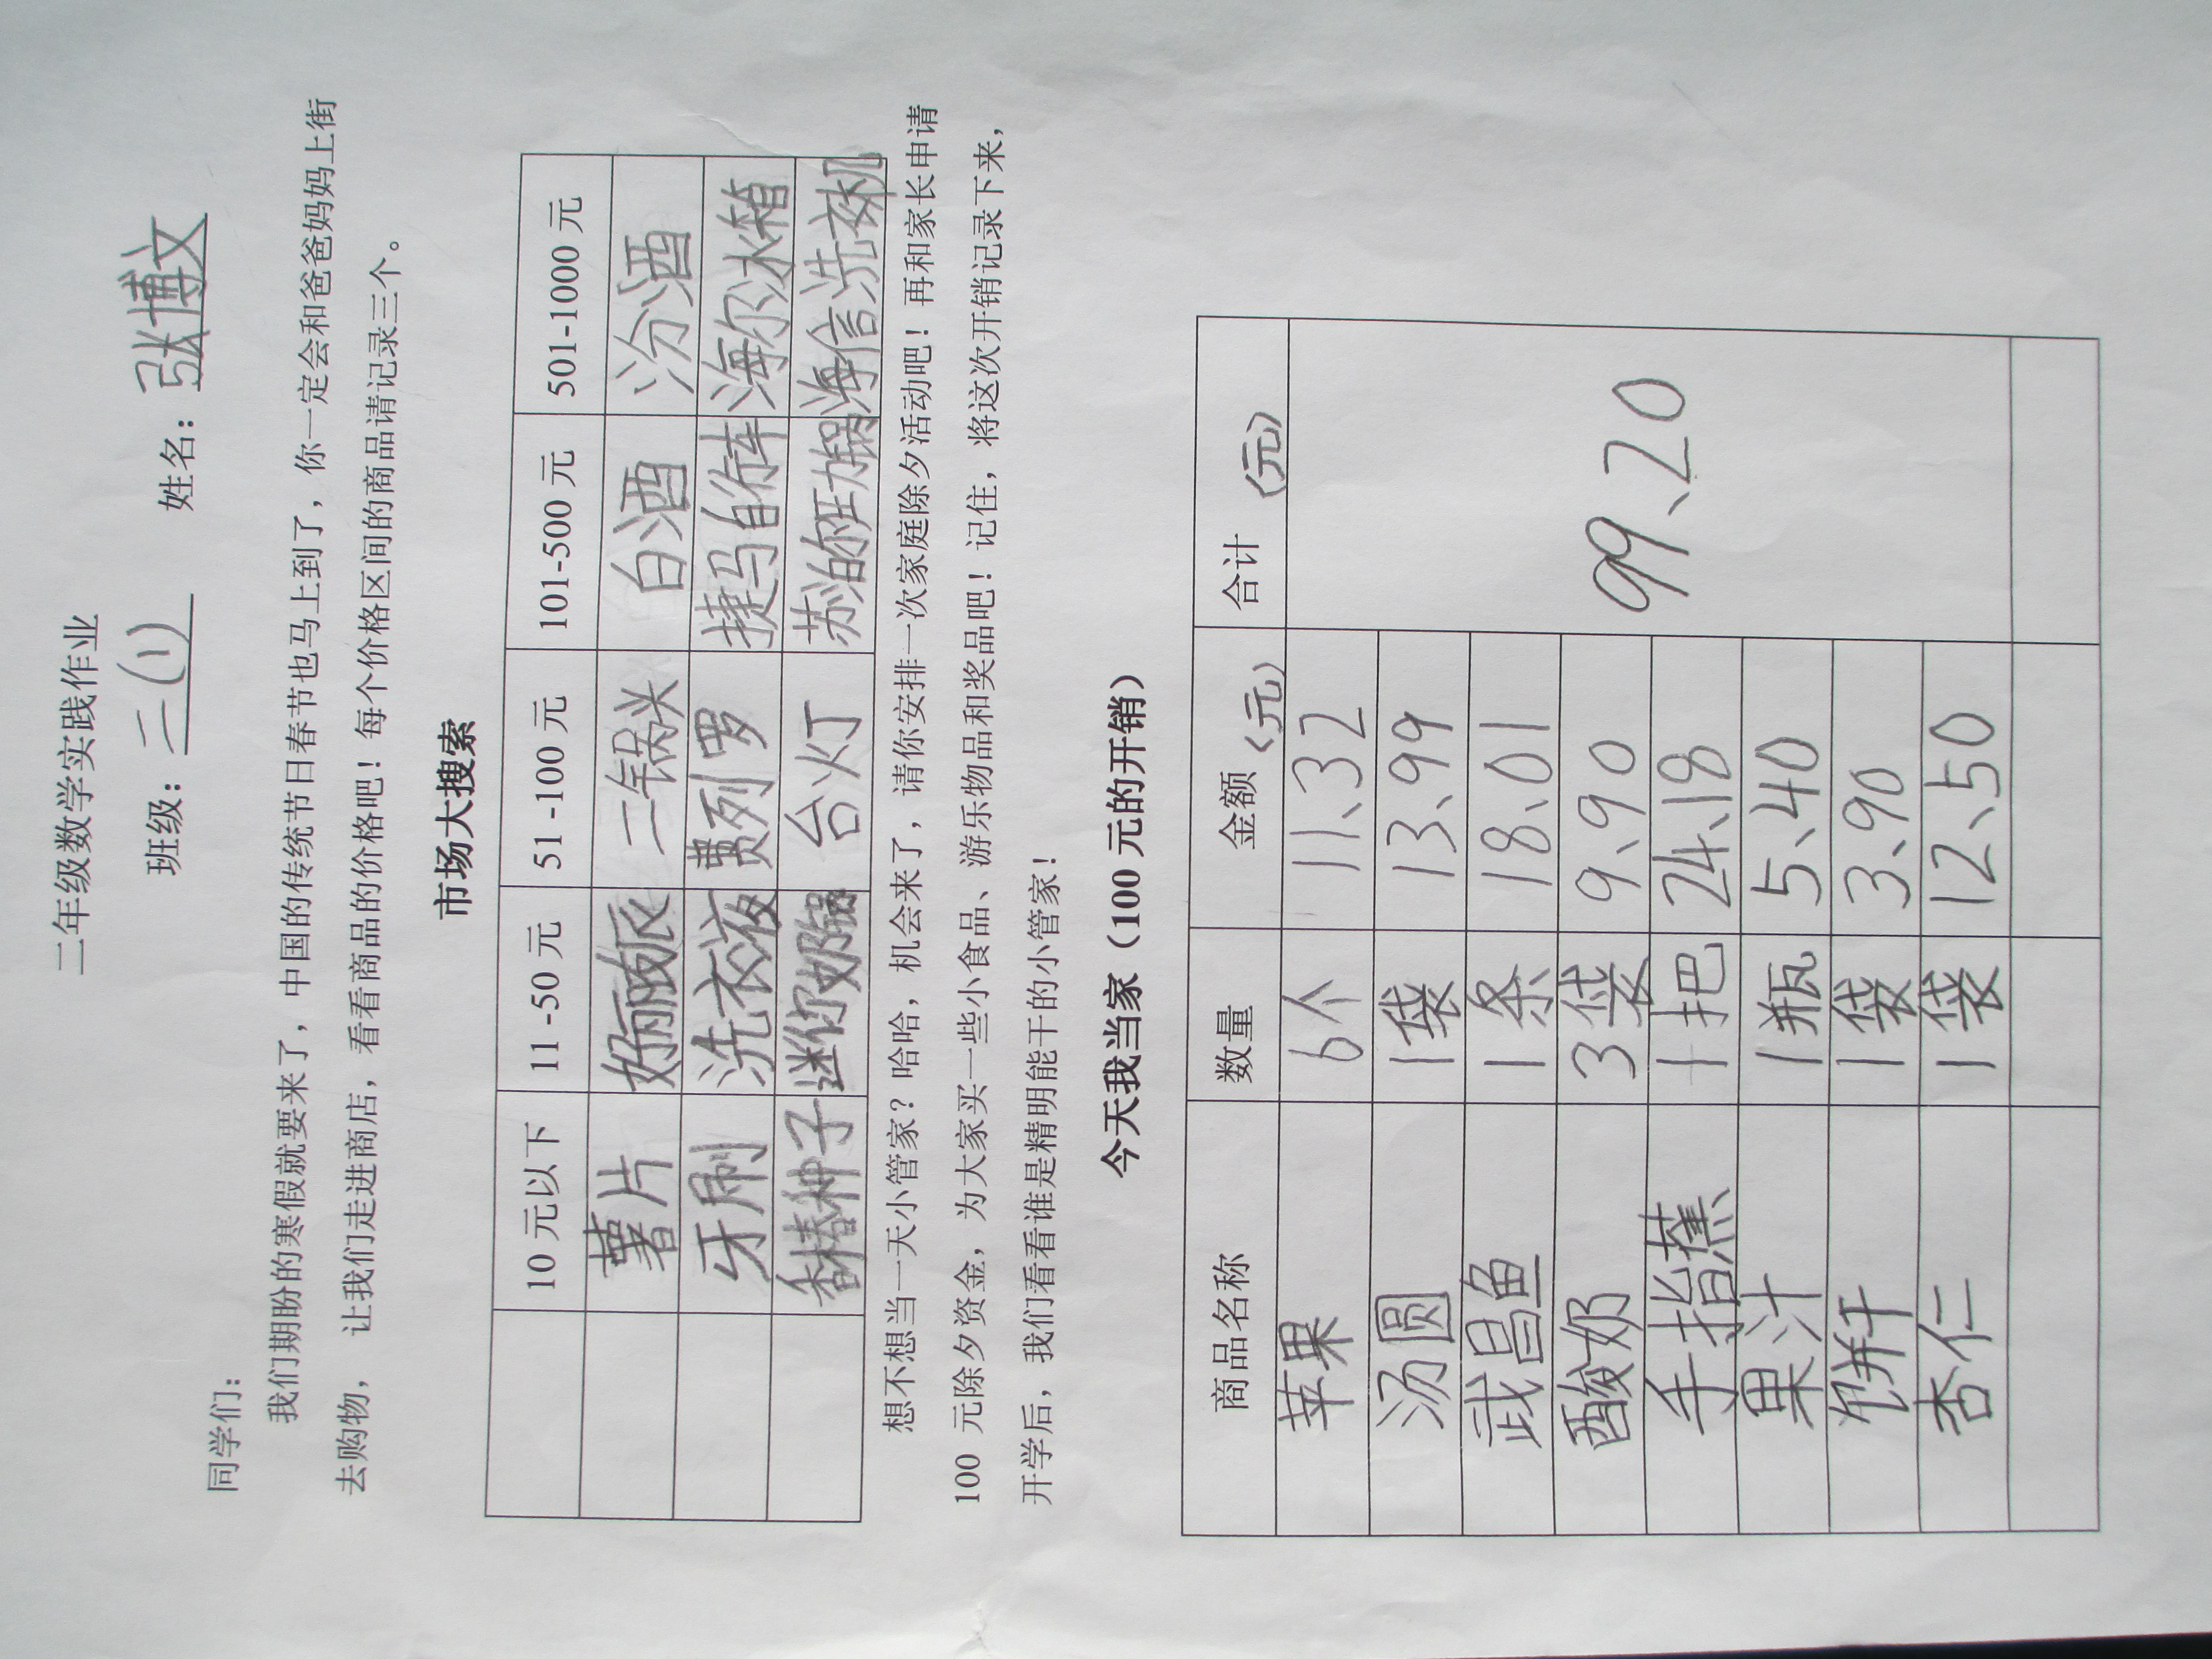 二年级数学实践作业
班级：二(1) 姓名：张博文
同学们：
我们期盼的寒假就要来了，中国的传统节日春节也马上到了，你一定会和爸爸妈妈上街
去购物， 让我们走进商店，看看商品的价格吧！每个价格区间的商品请记录三个。
市场大搜索
10 元以下 11 -50 元 51 -100 元 101-500 元 501-1000 元
薯片 好丽友派 二锅头 白酒 汾酒
牙刷 洗衣液 费列罗 捷马自行车 海尔冰箱
香椿种子 迷你奶锅 台灯 苏泊尔压力锅 海信洗衣机
想不想当一天小管家？哈哈，机会来了，请你安排一次家庭除夕活动吧！再和家长申请
100 元除夕资金，为大家买一些小食品、游乐物品和奖品吧！记住，将这次开销记录下来，
开学后，我们看看谁是精明能干的小管家！
今天我当家（100 元的开销）
商品名称 数量 金额（元） 合计（元）
苹果 6个 11、32 99、20
汤圆 1袋 13、99
武昌鱼 1条 18、01
酸奶 3袋 9、90
手指蕉 1把 24、18
果汁 1瓶 5、40
饼干 1袋 3、90
杏仁 1袋 12、50